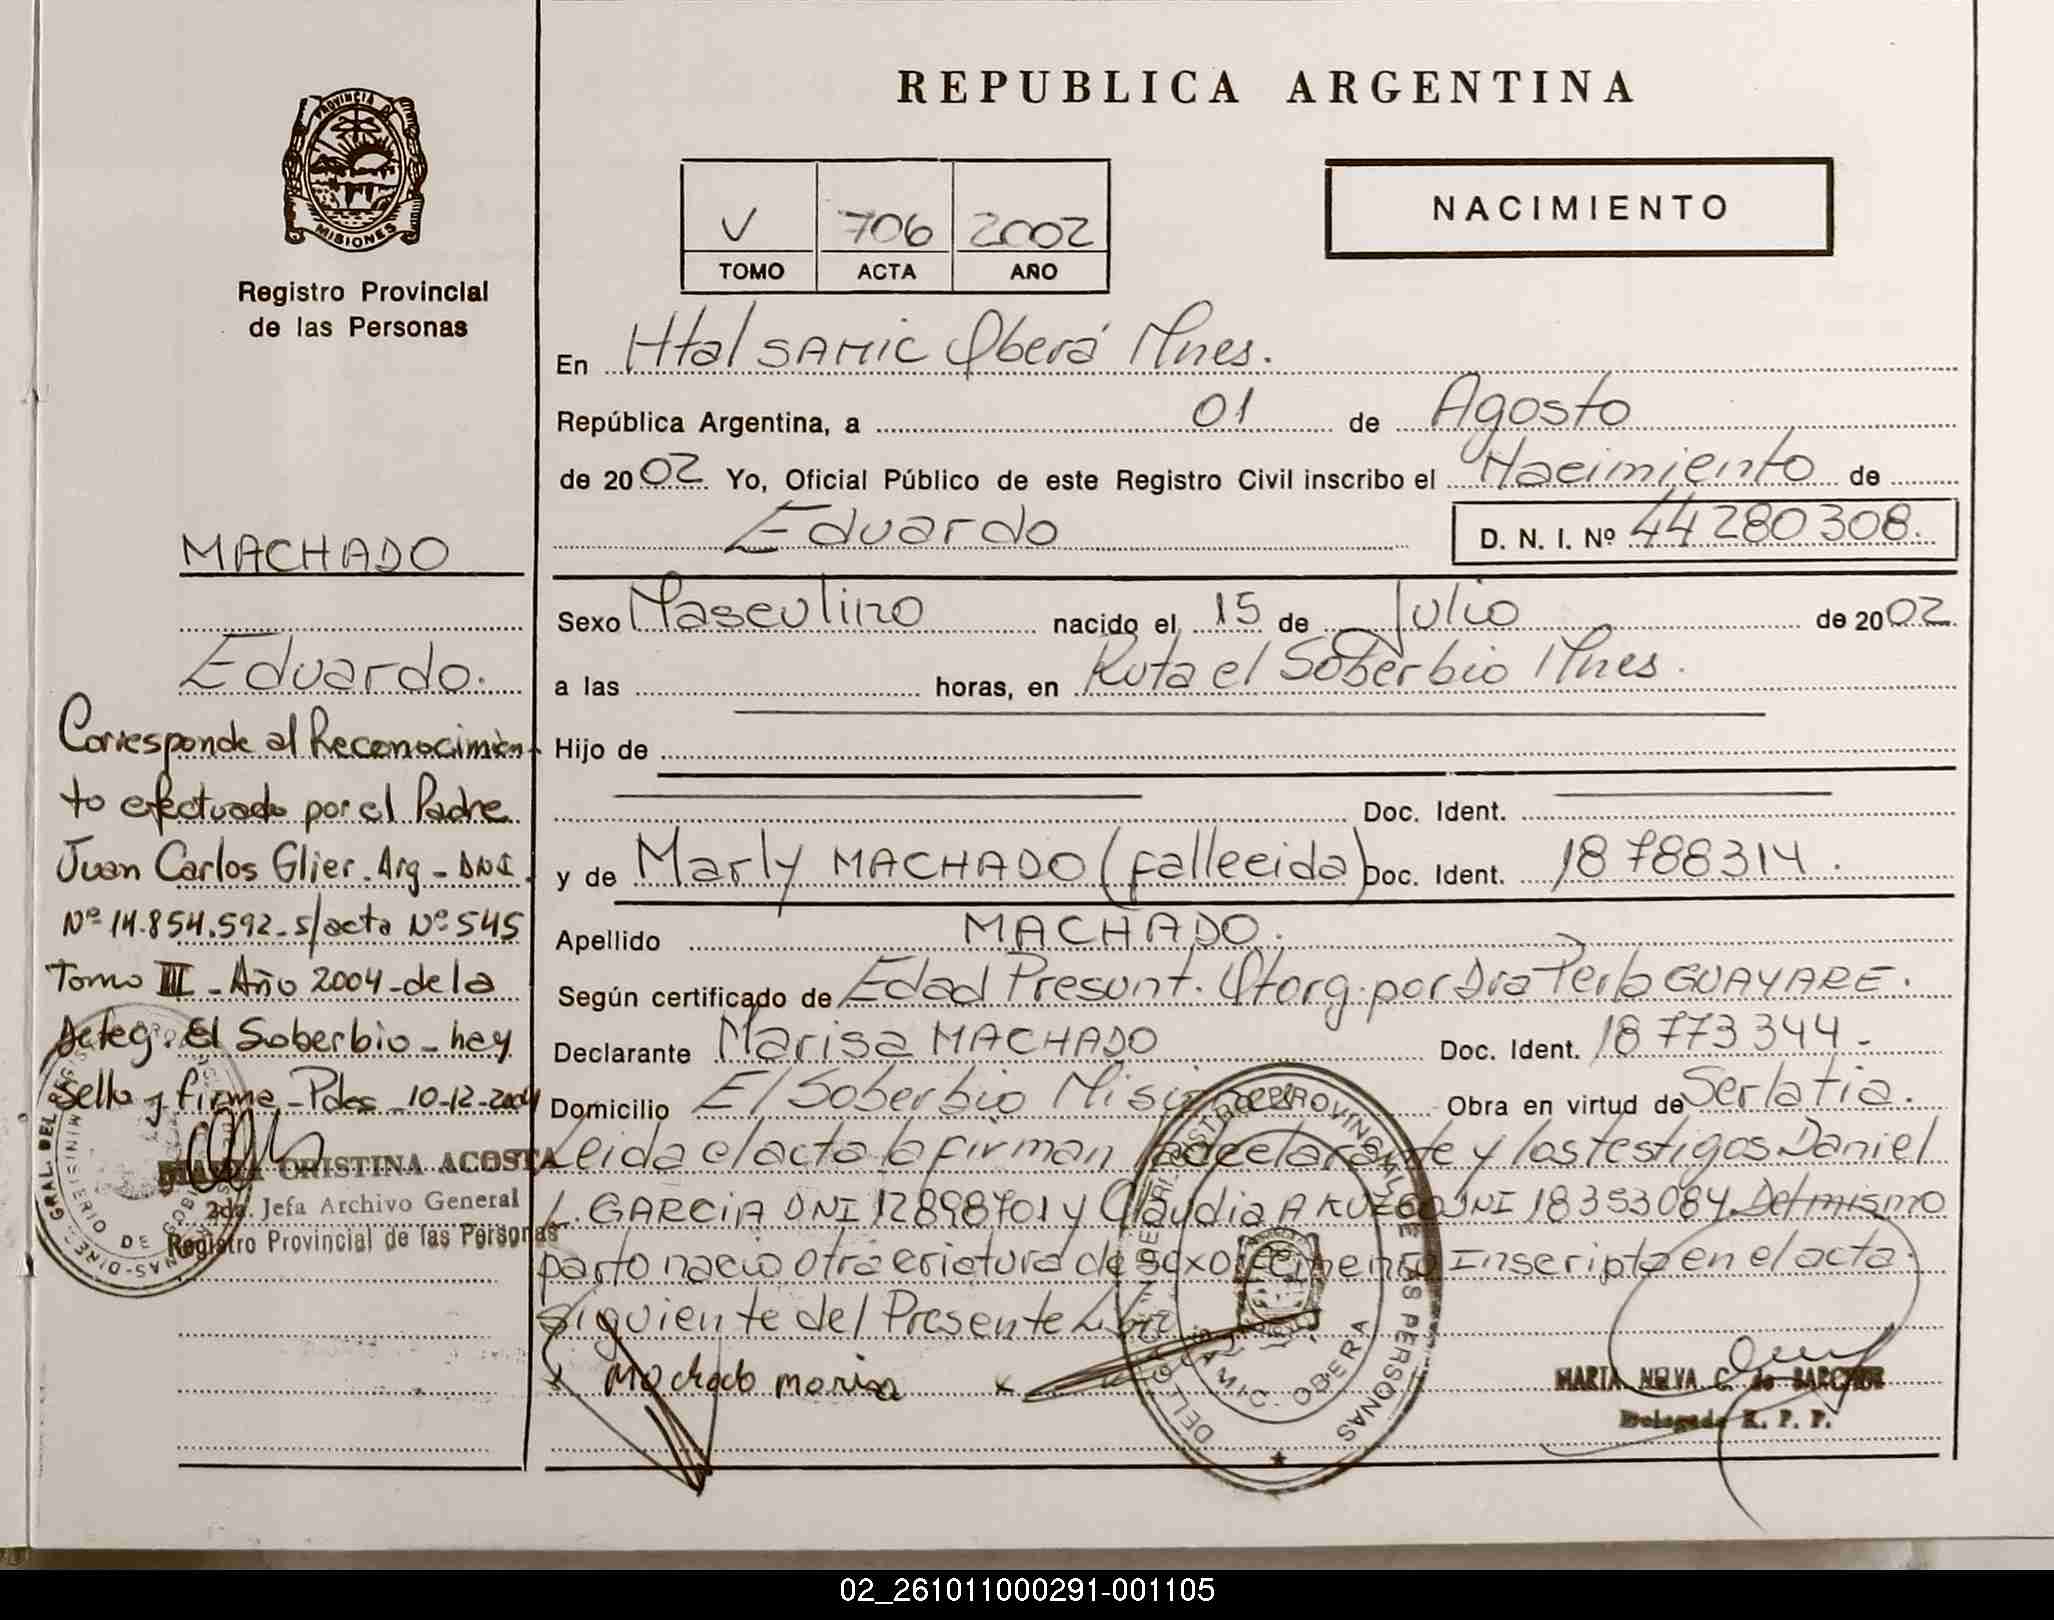 REPUBLICA ARGENTINA
PROVINCIA DE
MISIONES
Registro Provincial
de las Personas
V 706 2002
TOMO ACTA AÑO
NACIMIENTO
En Htal SAMIC Oberá Mnes.
República Argentina, a 01 de Agosto
de 2002 Yo, Oficial Público de este Registro Civil inscribo el Nacimiento de
Eduardo D. N. I. Nº 44280308.
Sexo Masculino nacido el 15 de Julio de 2002
a las horas, en Ruta el Soberbio Mnes.
Hijo de
Doc. Ident.
y de Marly MACHADO (fallecida) Doc. Ident. 18788314.
Apellido MACHADO.
Según certificado de Edad Presunt. Otorg. por Dra Perla GUAYARE.
Declarante Marisa MACHADO Doc. Ident. 18773344.-
Domicilio El Soberbio Obra en virtud de Ser la tia.
Leida el acta la firman la declarante y los testigos Daniel
L. GARCIA DNI 12898701 y Claudia A DNI 18353084. Del mismo
parto nacio otra criatura de sexo femenino Inscripta en el acta
siguiente del Presente Libro
x Machado marisa x
MARIA NELVA C. de
Delegada R. P. P.
DEL REGISTRO PROVINCIAL DE LAS PERSONAS
OBERA
MACHADO
Eduardo.
Corresponde al Reconocimien-
to efectuado por el Padre
Juan Carlos Glier. Arg - DNI.
Nº 14.854.592 - s/acta Nº 545
Tomo III - Año 2004 - de la
Deleg. El Soberbio - hay
sello y firma - Pdas - 10-12-2004
CRISTINA ACOSTA
2da. Jefa Archivo General
Registro Provincial de las Personas
02_261011000291-001105